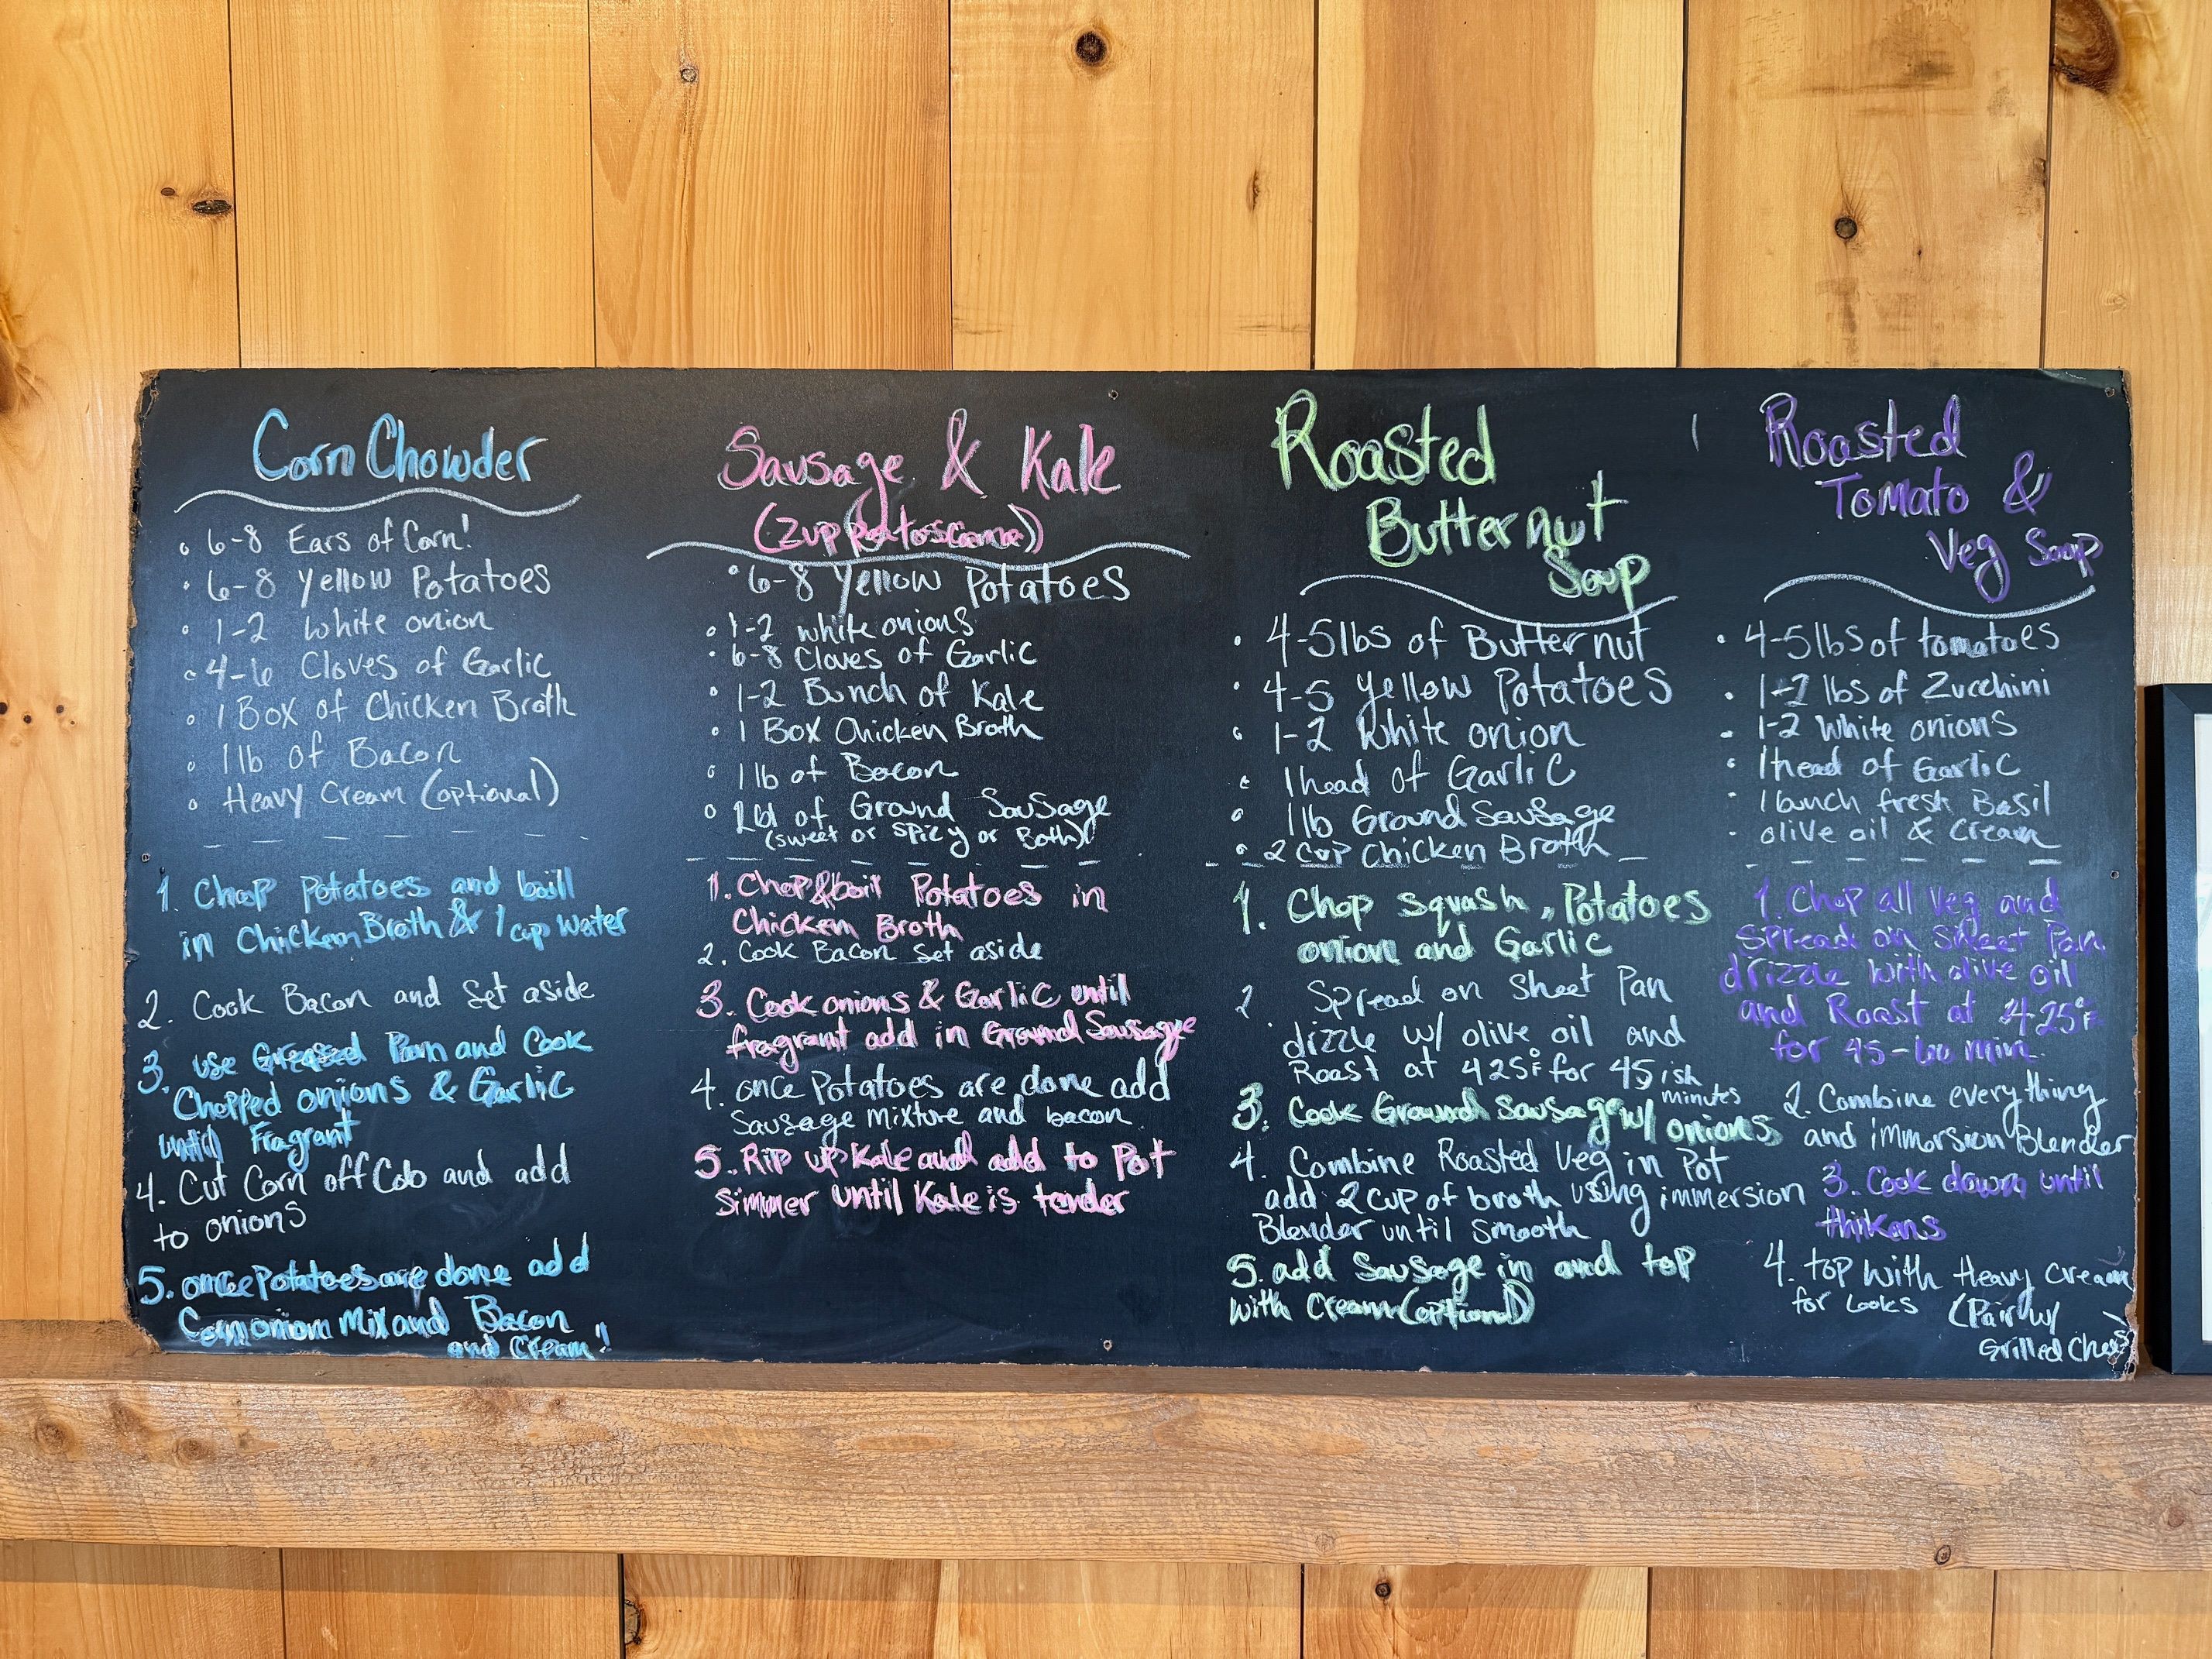 Corn Chowder
• 6-8 Ears of Corn!
• 6-8 Yellow Potatoes
• 1-2 White onion
• 4-6 Cloves of Garlic
• 1 Box of Chicken Broth
• 1 lb of Bacon
• Heavy Cream (optional)
1. Chop Potatoes and boill
in Chicken Broth & 1 cup Water
2. Cook Bacon and Set aside
3. use Greased Pan and Cook
Chopped onions & Garlic
until Fragrant
4. Cut Corn off Cob and add
to onions
5. once Potatoes are done add
Corn onion Mix and Bacon
and Cream!
Sausage & Kale
(Zuppatoscana)
• 6-8 Yellow Potatoes
• 1-2 white onions
• 6-8 Cloves of Garlic
• 1-2 Bunch of Kale
• 1 Box Chicken Broth
• 1 lb of Bacon
• of Ground Sausage
(sweet or spicy or Both)
1. Chop & boil Potatoes in
Chicken Broth
2. Cook Bacon Set aside
3. Cook onions & Garlic until
fragrant add in Ground Sausage
4. once Potatoes are done add
Sausage Mixture and bacon.
5. Rip up Kale and add to Pot
Simmer until Kale is tender
Roasted
Butternut
Soup
• 4-5 lbs of Butternut
• 4-5 Yellow Potatoes
• 1-2 White onion
• 1 head of Garlic
• 1 lb Ground Sausage
• 2 cup Chicken Broth
1. Chop squash, Potatoes
onion and Garlic
2. Spread on Sheet Pan
dizzle w/ olive oil and
Roast at 425°F for 45 ish
minutes
3. Cook Ground Sausage w/ onions
4. Combine Roasted Veg in Pot
add 2 cup of broth using immersion
Blender until Smooth
5. add Sausage in and top
with Cream (optional)
Roasted
Tomato &
Veg Soup
• 4-5 lbs of tomatoes
• 1-2 lbs of Zucchini
• 1-2 White onions
• 1 head of Garlic
• 1 bunch fresh Basil
• olive oil & Cream
1. Chop all Veg and
Spread on Sheet Pan
drizzle with olive oil
and Roast at 425°F
for 45-60 min.
2. Combine everything
and immorsion Blender
3. Cook down until
thikens
4. top with Heavy Cream
for Looks (Pair w/
Grilled Chees)